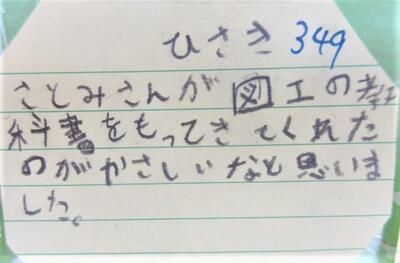 ひさき 349
さとみさんが図工の教
科書をもってきてくれた
のがやさしいなと思いま
した。